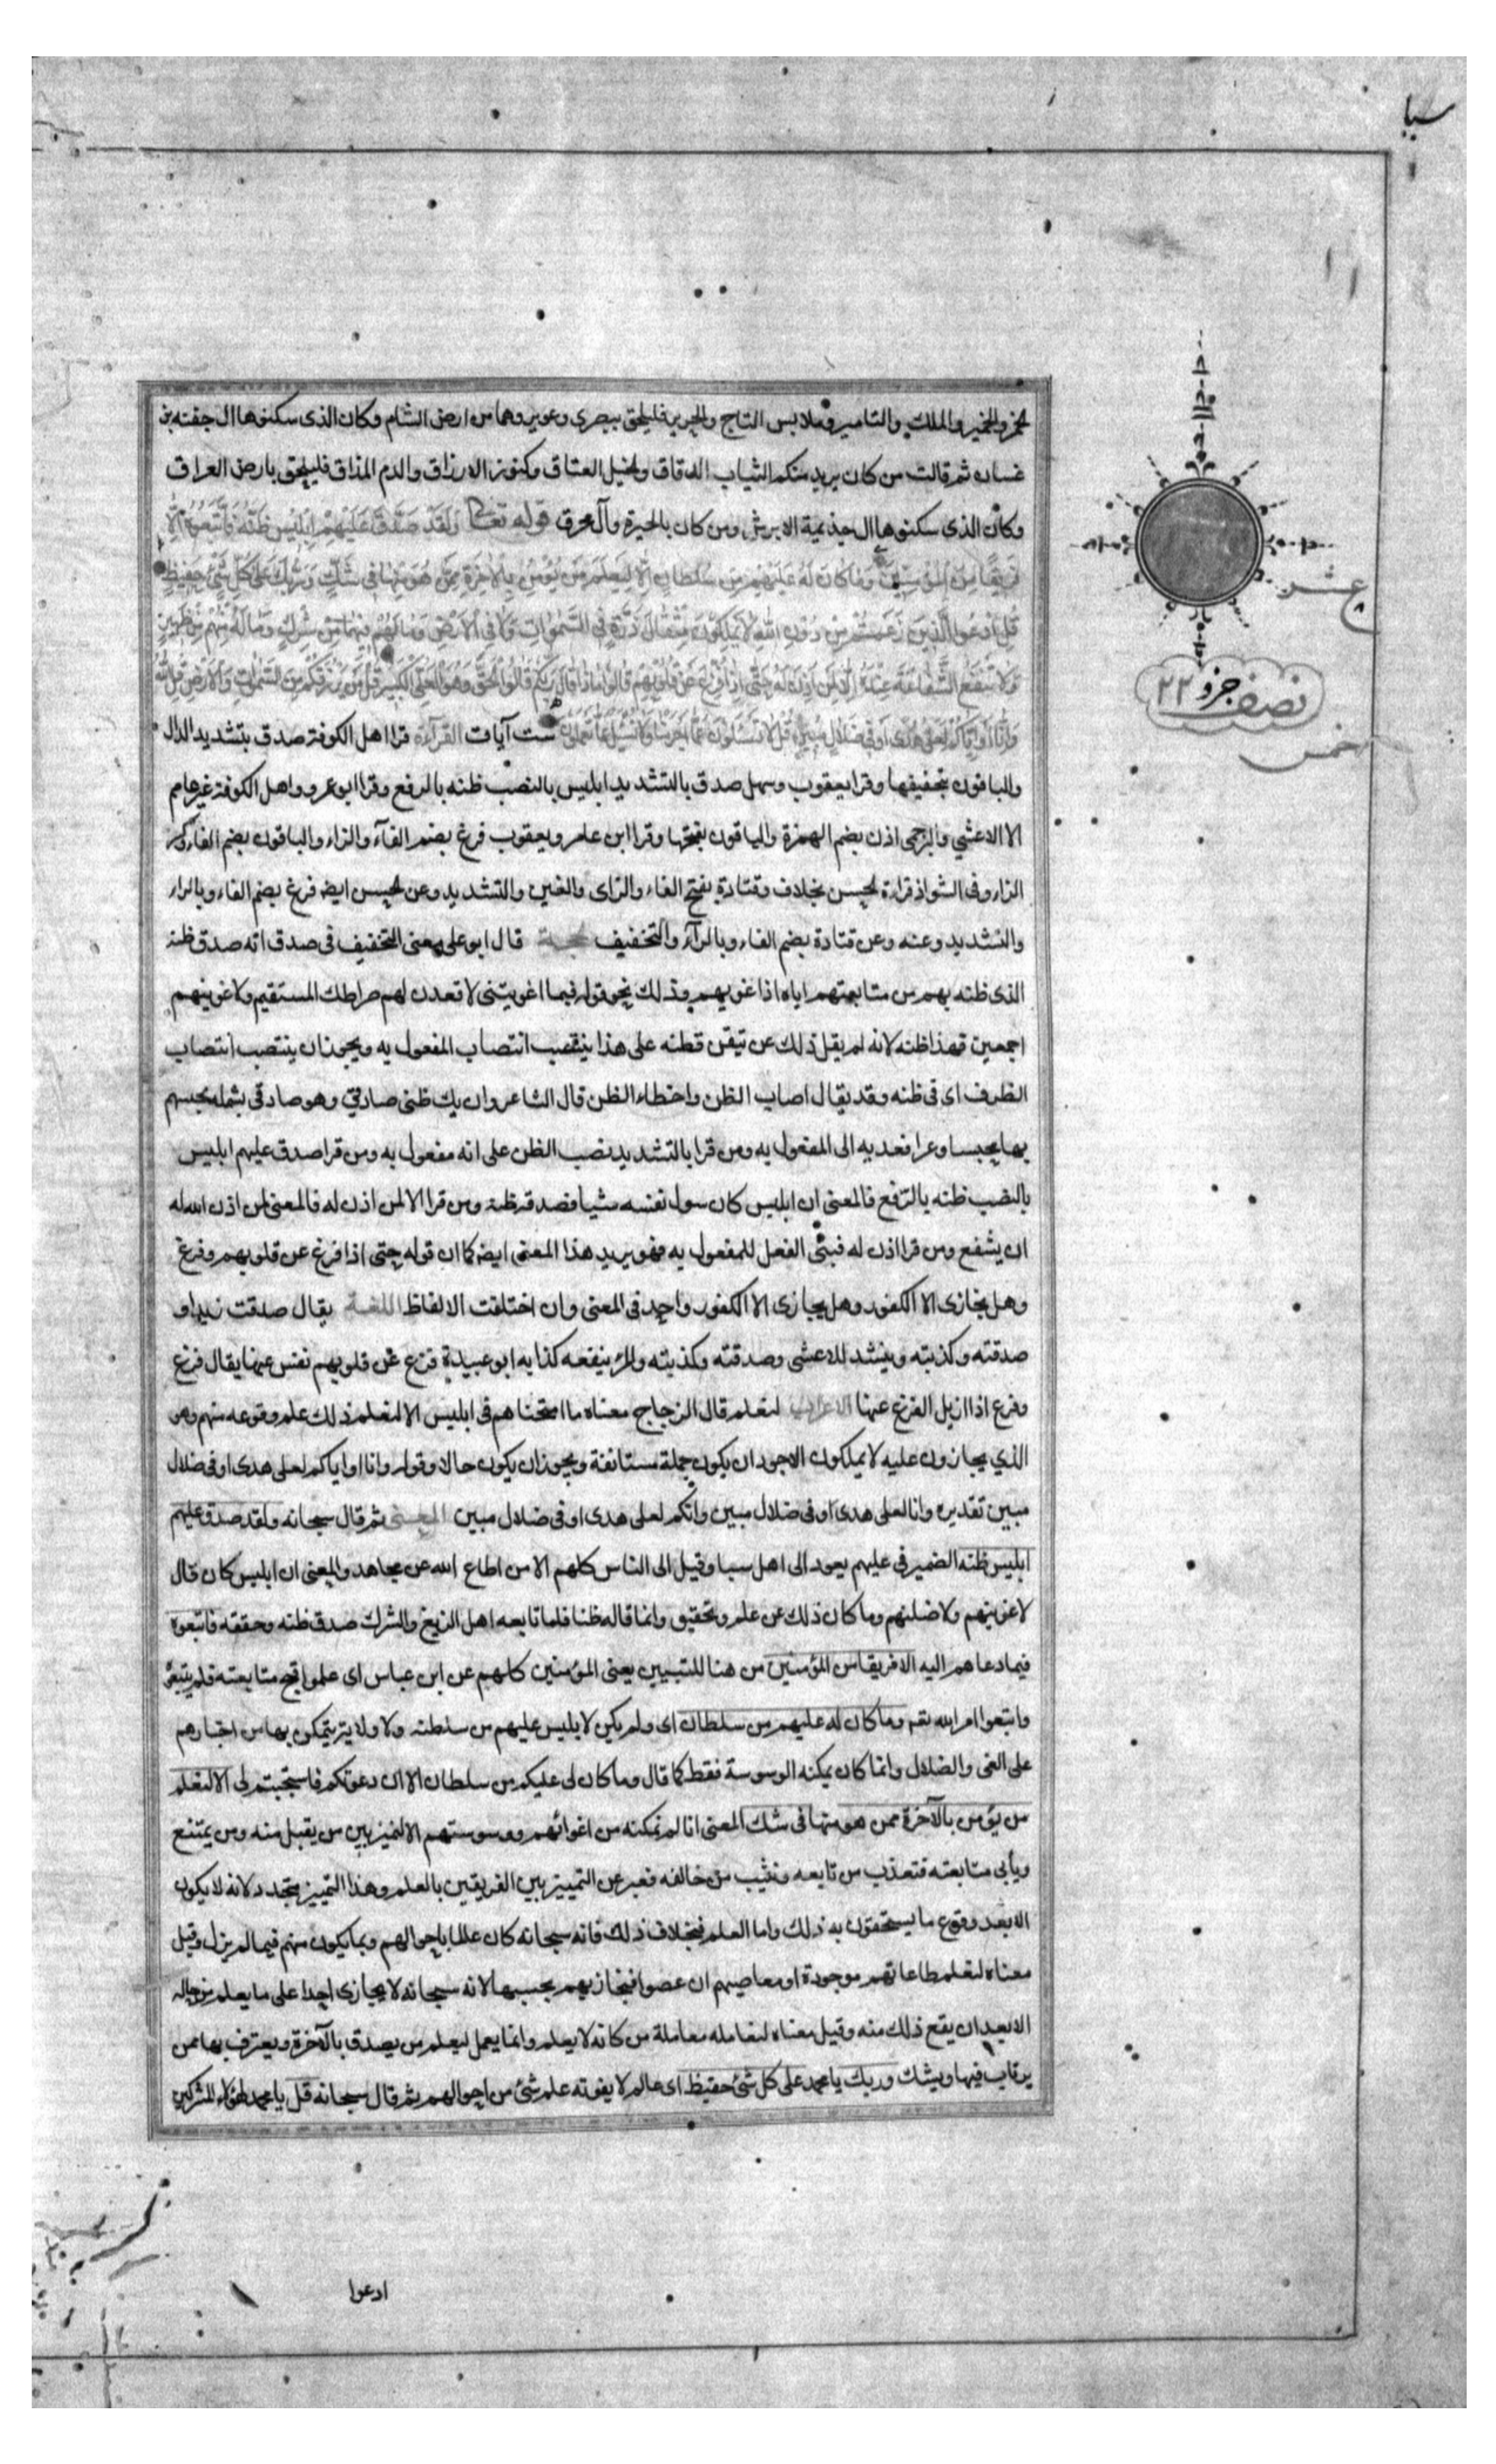 سبا
الخمر والخمير والملك والتامير وملابس التاج والحرير فليلحق ببصرى وعوير وهما من ارض الشام وكان الذى سكنوها ال جفنه بن
غسان ثم قالت من كان يريد منكم الثياب الدقاق والخيل العتاق وكنوز الارزاق والدم المذاق فليلحق بارض العراق
وكان الذى سكنوها ال جذيمة الابرش ومن كان بالحيرة وآل محرق قوله تعالى وَلَقَدْ صَدَّقَ عَلَيْهِمْ اِبْليسُ ظَنَّهُ فَاتَّبَعُوهُ اِلّا
فَريقًا مِنَ المُؤمِنِينَ وَمَا كَانَ لَهُ عَلَيْهِمْ مِنْ سُلْطَانٍ اِلّا لِنَعْلَمَ مَنْ يُؤْمِنُ بِالْآخِرَةِ مِمَّنْ هُوَ مِنْهَا فِى شَكٍّ وَرَبُّكَ عَلى كُلِّ شَئٍ حَفيظٌ
قُلِ ادْعُوا الَّذينَ زَعَمْتُمْ مِنْ دُونِ اللهِ لَا يَمْلِكُونَ مِثْقَالَ ذَرَّةٍ فِى السَّمٰوَاتِ وَلَا فِى الْاَرْضِ وَمَا لَهُمْ فيهِمَا مِنْ شِرْكٍ وَمَا لَهُ مِنْهُمْ مِنْ ظَهيرٍ
وَلَا تَنْفَعُ الشَّفَاعَةُ عِنْدَهُ اِلّا لِمَنْ اَذِنَ لَهُ حَتّى اِذَا فُزِّعَ عَنْ قُلُوبِهِمْ قَالُوا مَاذَا قَالَ رَبُّكُمْ قَالُوا الْحَقَّ وَهُوَ الْعَلِىُّ الْكَبيرُ قُلْ مَنْ يَرْزُقُكُمْ مِنَ السَّمٰوَاتِ وَالْاَرْضِ قُلِ اللهُ
وَاِنَّا اَوْ اِيَّاكُمْ لَعَلى هُدًى اَوْ فِى ضَلَالٍ مُبينٍ قُلْ لَا تُسْئَلُونَ عَمَّا اَجْرَمْنَا وَلَا نُسْئَلُ عَمَّا تَعْمَلُونَ ست آيات القرآءة قرا اهل الكوفة صدق بتشديد الدال
والباقون بتخفيفها وقرا يعقوب وسهل صدق بالتشديد ابليس بالنصب ظنه بالرفع وقرا ابو عمرو واهل الكوفة غير عاصم
الا الاعشي والبرجمى اذن بضم الهمزة والباقون بفتحها وقرا ابن عامر ويعقوب فزع بضم الفآء والزاء والباقون بضم الفاء وكسر
الزاء وفى الشواذ قراءة الحسن بخلاف وقتادة بفتح الفاء والزاى والغين والتشديد وعن الحسن ايضه فرغ بضم الفاء وبالراء
والتشديد وعنه وعن قتادة بضم الفاء وبالرآء والتخفيف الحجة قال ابو على معنى التخفيف فى صدق انه صدق ظنه
الذى ظنه بهم من متابعتهم اياه اذا غويهم وذلك نحو قوله فبما اغويتنى لاقعدن لهم صراطك المستقيم ولاغوينهم
اجمعين فهذا ظنه لانه لم يقل ذلك عن تيقن فظنه على هذا ينتصب انتصاب المفعول به ويجوز ان ينتصب انتصاب
الظرف اى فى ظنه وقد يقال اصاب الظن واخطاء الظن قال الشاعر وان يك ظنى صادقى وهو صادقى بشملة يحبسهم
بها محبسا وعرا فعديه الى المفعول به ومن قرا بالتشديد نصب الظن على انه مفعول به ومن قرا صدق عليهم ابليس
بالنصب ظنه بالرفع فالمعنى ان ابليس كان سول نفسه شيا فصدقه ظنه ومن قرا الا لمن اذن له فالمعنى لمن اذن الله له
ان يشفع ومن قرا اذن له فبنى الفعل للمفعول به فهو يريد هذا المعنى ايضه كما ان قوله حتى اذا فزع عن قلوبهم وفزع
وهل نجازى الا الكفور وهل يجازى الا الكفور واحد فى المعنى وان اختلفت الالفاظ اللغة يقال صدقت زيدا و
صدقته وكذبته وينشد للاعشى وصدقته وكذبته والمرء ينفعه كذابه ابو عبيدة فزع عن قلوبهم نفس عنها يقال فزع
وفزع اذا ازيل الفزع عنها الاعراب لنعلم قال الزجاج معناه ما امتحناهم فى ابليس الا لنعلم ذلك علم وقوعه منهم وهو
الذي يجازون عليه لا يملكون الاجود ان يكون جملة مستانفة ويجوز ان يكون حالا وقوله وانا او اياكم لعلى هدى او فى ضلال
مبين تقديره وانا لعلى هدى او فى ضلال مبين وانكم لعلى هدى او فى ضلال مبين المعنى ثم قال سبحانه ولقد صدق عليهم
ابليس ظنه الضمير فى عليهم يعود الى اهل سبا وقيل الى الناس كلهم الا من اطاع الله عن مجاهد والمعنى ان ابليس كان قال
لاغوينهم ولاضلنهم وما كان ذلك عن علم وتحقيق وانما قاله ظنا فلما تابعه اهل الزيغ والشرك صدق ظنه وحققه فاتبعوه
فيما دعاهم اليه الا فريقا من المؤمنين من هنا للتبيين يعنى المؤمنين كلهم عن ابن عباس اى علموا قبح متابعته فلم يتبعوه
واتبعوا امر الله تقم وما كان له عليهم من سلطان اى ولم يكن لابليس عليهم من سلطنة ولا ولاية يتمكن بها من اجبارهم
على الغى والضلال وانما كان يمكنه الوسوسة فقط كما قال وما كان لى عليكم من سلطان الا ان دعوتكم فاستجبتم لى الا لنعلم
من يؤمن بالآخرة ممن هو منها فى شك المعنى انا لم نمكنه من اغوائهم ووسوستهم الا لنميز بين من يقبل منه ومن يمتنع
ويأبى متابعته فنعذب من تابعه ونثيب من خالفه فعبر عن التمييز بين الفريقين بالعلم وهذا التمييز متجدد لانه لا يكون
الا بعد وقوع ما يستحقون به ذلك واما العلم فبخلاف ذلك فانه سبحانه كان عالما باحوالهم وبما يكون منهم فيما لم يزل وقيل
معناه لنعلم طاعاتهم موجودة او معاصيهم ان عصوا فنجازيهم بحسبها لانه سبحانه لا يجازى احدا على ما يعلم من حاله
الا بعد ان يقع ذلك منه وقيل معناه لنعامله معاملة من كانه لا يعلم وانما يعمل ليعلم من يصدق بالآخرة ويعترف بها ممن
يرتاب فيها ويشك وربك يا محمد على كل شئ حفيظ اى عالم لا يفوته علم شئ من احوالهم ثم قال سبحانه قل يا محمد لهؤلاء المشركين
عشر
نصف جزو ٢٢
خمس
ادعوا